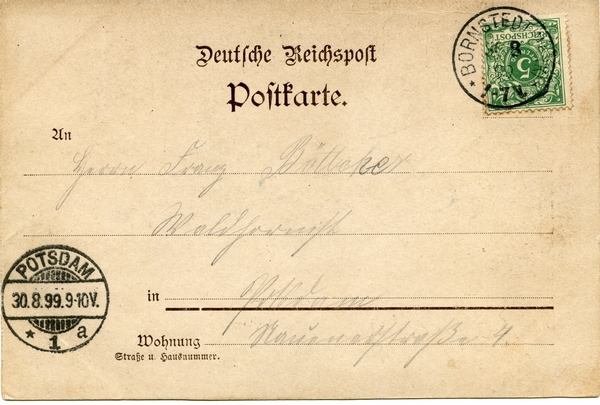 Deutsche Reichspost
Postkarte.
BORNSTEDT
8
7 V.
REICHSPOST
5
An
Herrn Franz Böttcher
Waldhornist
POTSDAM
30.8.99.9-10V.
* 1 a
in Potsdam
Wohnung Nauenerstraße 4.
Straße u. Hausnummer.